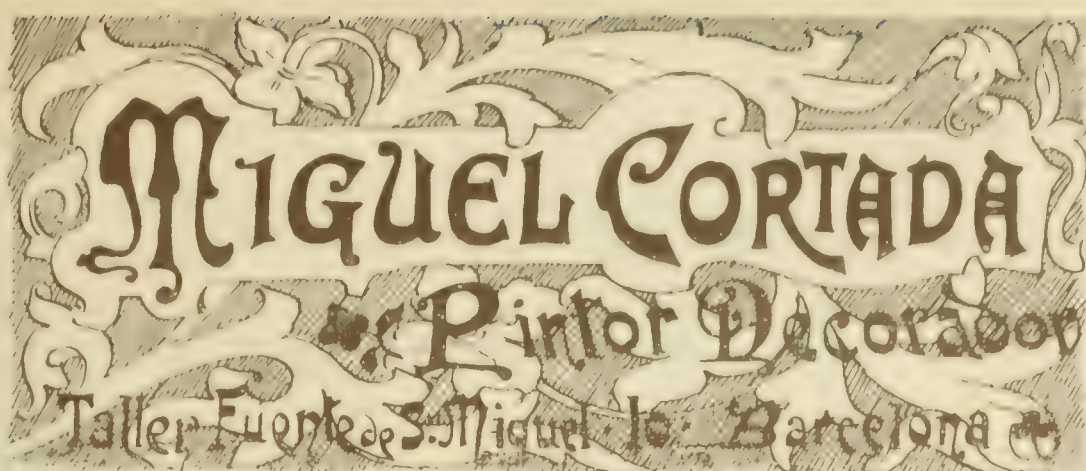 MIGUEL CORTADA
Pintor Decorador
Taller Fuente de S. Miguel · 10 · Barcelona